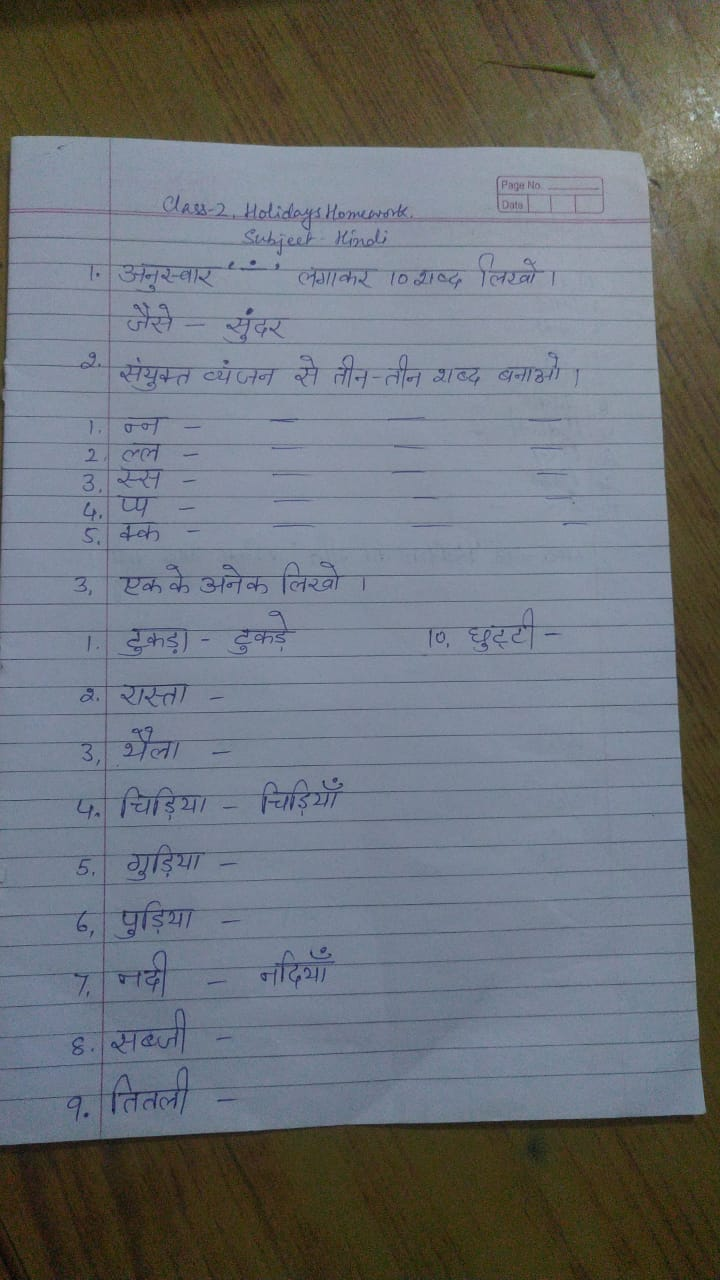 Page No.
Date
Class-2, Holidays Homework.
Subject - Hindi
1. अनुस्वार '∸' लगाकर 10 शब्द लिखो।
जैसे - सुंदर
2. संयुक्त व्यंजन से तीन-तीन शब्द बनाओ।
1. न्न - — — —
2. ल्ल - — — —
3. स्स - — — —
4. प्प - — — —
5. क्क - — — —
3. एक के अनेक लिखो।
1. टुकड़ा - टुकड़े 10. छुट्टी -
2. रास्ता -
3. थैला -
4. चिड़िया - चिड़ियाँ
5. गुड़िया -
6. पुड़िया -
7. नदी - नदियाँ
8. सब्जी -
9. तितली -